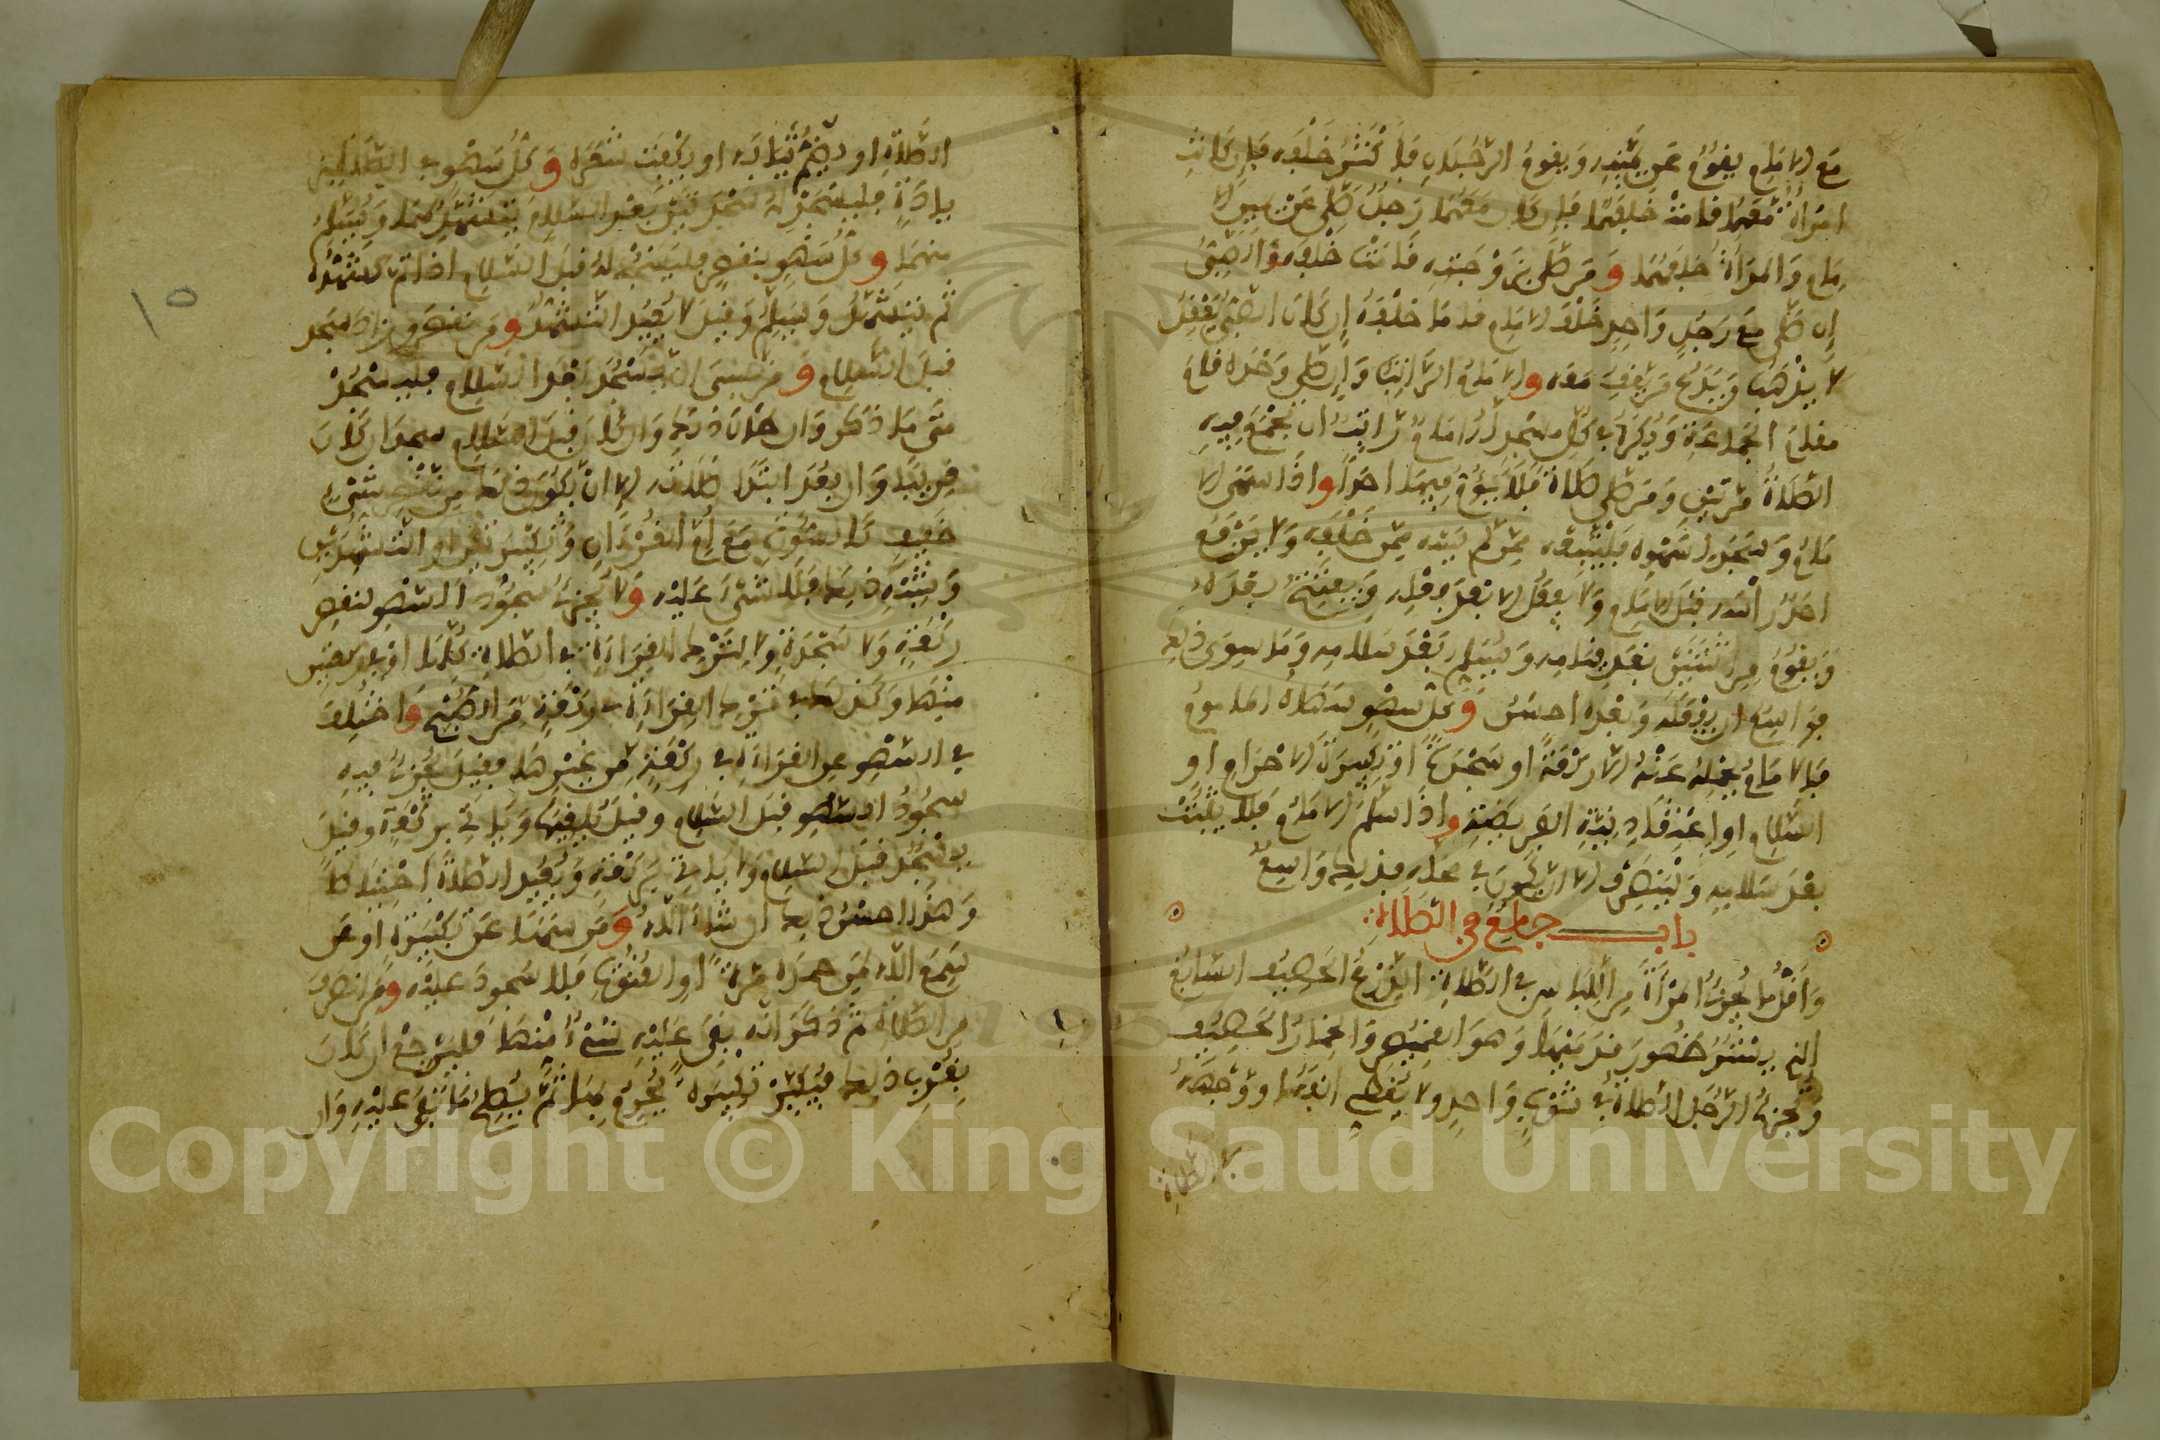 مع الامام يقوم عن يمينه ويقوم الرجلان فاكثر خلفه فان كانت
امراة معهما قامت خلفهما فان كان معهما رجل صلى عن يمين الا
مام والمراة خلفهما ومن صلى بزوجته قامت خلفه والصبي
ان صلى مع رجل واحد خلف الامام قاما خلفه ان كان الصبي يعقل
لا يذهب ويدع من يقف معه والامام الراتب ان صلى وحده قام
مقام الجماعة ويكره في كل مسجد له امام راتب ان تجمع فيه
الصلاة مرتين ومن صلى صلاة فلا يؤم فيها احدا واذا سهى الا
مام وسجد لسهوه فليتبعه من لم يسه ممن خلفه ولا يرفع
احد راسه قبل الامام ولا يفعل الا بعد فعله ويفتتح بعده
ويقوم من اثنتين بعد قيامه ويسلم بعد سلامه وما سوى ذلك
فواسع ان يفعله وبعده احسن وكل سهو سهاه الماموم
فالامام يحمله عنه الا ركعة او سجدة او تكبيرة الاحرام او
السلام او اعتقاد نية الفريضة واذا سلم الامام فلا يثبت
بعد سلامه ولينصرف الا ان يكون في محله فذلك واسع
باب جامع في الصلاة
واقل ما يجزئ المراة من اللباس في الصلاة الدرع الحصيف السابغ
الذي يستر ظهور قدميها وهو القميص والخمار الحصيف
ويجزئ الرجل الصلاة في ثوب واحد ولا يغطي انفه او وجهه
في الصلاة
١٥
الصلاة او يضم ثيابه او يكفت شعره وكل سهو في الصلاة
بزيادة فليسجد له سجدتين بعد السلام يتشهد لهما ويسلم
منهما وكل سهو بنقص فليسجد له قبل السلام اذا تم تشهده
ثم يتشهد ويسلم وقيل لا يعيد التشهد ومن نقص وزاد سجد
قبل السلام ومن نسي ان يسجد بعد السلام فليسجد
متى ما ذكر وان طال ذلك وان كان قبل السلام سجد ان كان
قريبا وان بعد ابتدا صلاته الا ان يكون ذلك من نقص شيء
خفيف كالسورة مع ام القرءان وتكبيرتين او التشهدين
وشبه ذلك فلا شيء عليه ولا يجزئ سجود السهو لنقص
ركعة ولا سجدة ولا لترك القراءة في الصلاة كلها او في نصف
منها وكذلك في ترك القراءة في ركعة من الصبح واختلف
في السهو عن القراءة في ركعة من غيرها فقيل يجزئ فيه
سجود السهو قبل السلام وقيل يلغيها وياتي بركعة وقيل
يسجد قبل السلام ولا ياتي بركعة ويعيد الصلاة احتياطا
وهذا احسن ذلك ان شاء الله ومن سها عن تكبيرة او عن
سمع الله لمن حمده مرة او القنوت فلا سجود عليه ومن انصرف
من الصلاة ثم ذكر انه بقي عليه شيء منها فليرجع ان كان
بقرب ذلك فيكبر تكبيرة يحرم بها ثم يصلي ما بقي عليه وان
Copyright © King Saud University